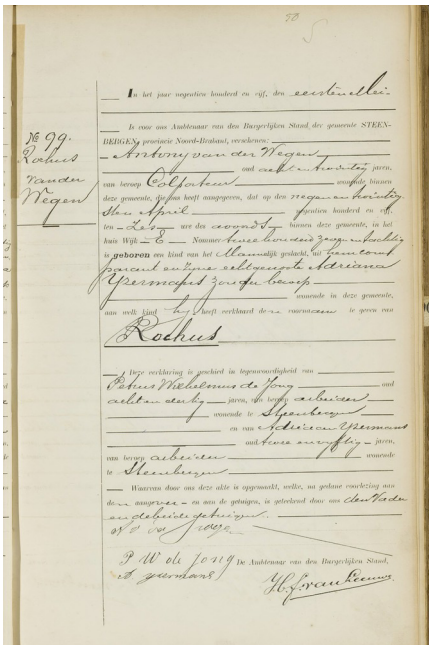 58
In het jaar negentien honderd en vijf, den eersten Mei
Is voor ons Ambtenaar van den Burgerlijken Stand der gemeente STEEN-
BERGEN, provincie Noord-Brabant, verschenen:
No 99.
Rochus
van der
Wegen
Antony van der Wegen
oud acht en twintig jaren,
van beroep Colpoteur wonende binnen
deze gemeente, die ons heeft aangegeven, dat op den negen en twintig
sten April negentien honderd en vijf,
ten zes ure des avonds binnen deze gemeente, in het
huis Wijk E Nummer twee honderd zeven en tachtig
is geboren een kind van het Mannelijk geslacht, uit hem com
parant en zijne echtgenoote Adriana
Ypermans zonder beroep
wonende in deze gemeente,
aan welk kind hij heeft verklaard den voornaam te geven van
Rochus
Deze verklaring is geschied in tegenwoordigheid van
Petrus Wilhelmus de Jong oud
acht en dertig jaren, van beroep arbeider
wonende te Steenbergen
en van Adriaan Ypermans
oud twee en vyftig jaren,
van beroep arbeider wonende
te Steenbergen
Waarvan door ons deze akte is opgemaakt, welke, na gedane voorlezing aan
den aangever en aan de getuigen, is geteekend door ons den Vader
en de beide getuigen.
P W de Jong De Ambtenaar van den Burgerlijken Stand,
A ypermans